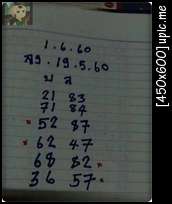 1.6.60
ลว.19.5.60
บ ล
21 83
71 84
× 52 87
× 62 47
68 82 ×
36 57 ×
[450x600] upic.me